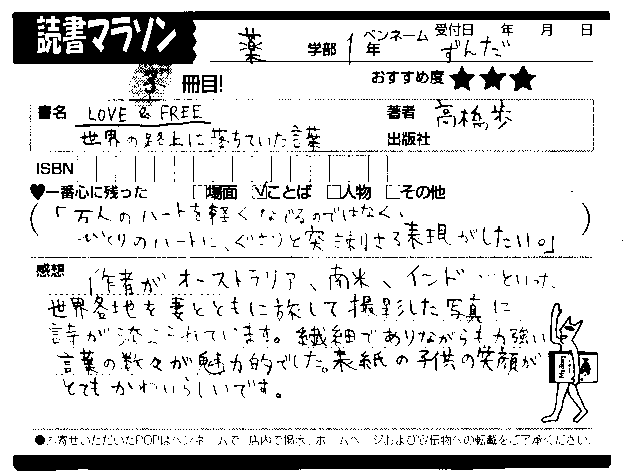 読書マラソン
薬 学部 1年 ペンネーム ずんだ 受付日 年 月 日
3 冊目! おすすめ度 ★★★
書名 LOVE & FREE 著者 高橋歩
世界の路上に落ちていた言葉 出版社
ISBN
♥一番心に残った □場面 ☑ことば □人物 □その他
(「万人のハートを軽くなでるのではなく、
ひとりのハートに、ぐさりと突き刺さる表現がしたい。」)
感想 作者がオーストラリア、南米、インド…といった
世界各地を妻とともに旅して撮影した写真に
詩が添えられています。繊細でありながらも力強い
言葉の数々が魅力的でした。表紙の子供の笑顔が
とてもかわいらしいです。
●お寄せいただいたPOPはペンネームで、店内で掲示、ホームページおよび宣伝物への転載をご了承ください。